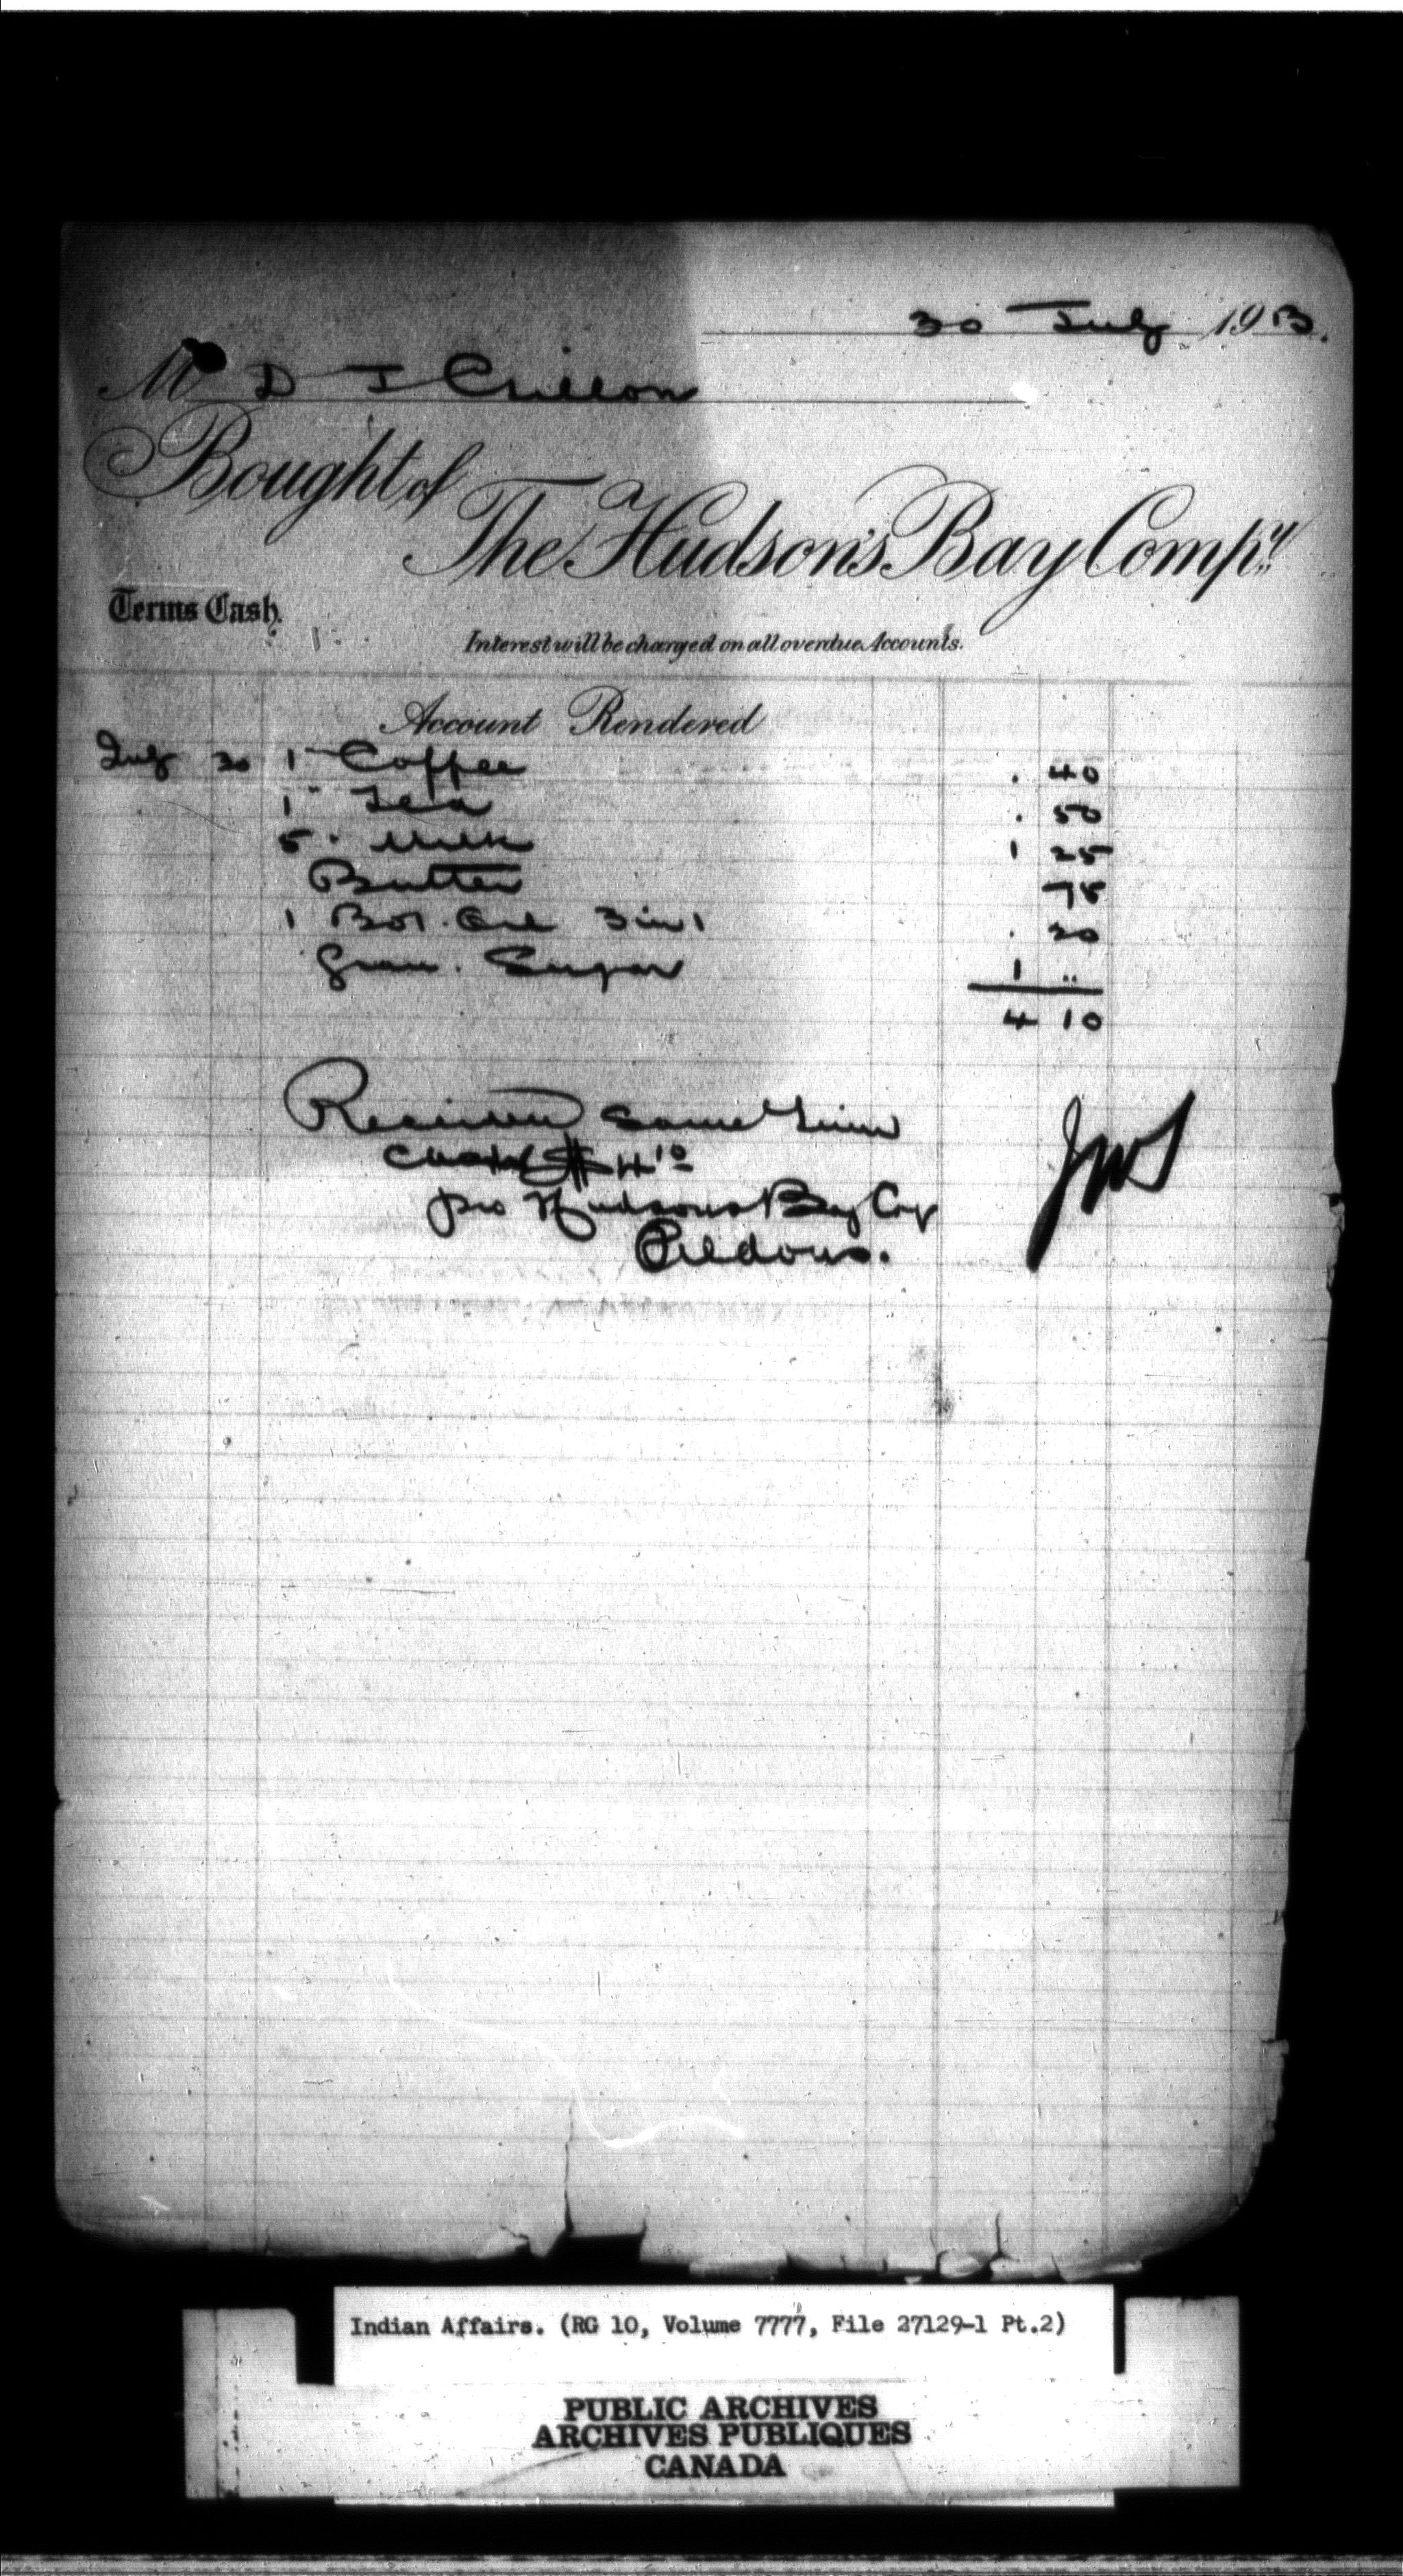 30 July 1913.
M D I Crillon
Bought of
The Hudson's Bay Compy
Terms Cash.
Interest will be charged on all overdue Accounts.
Account Rendered
July 30 1 Coffee . 40
1 Tea . 50
5 Milk 1 25
Butter 75
1 Bot. Oil 3 in 1 . 20
Gran. Sugar 1 ..
4 10
Received same time
$4 10
pro Hudsons Bay Coy
JWS
Indian Affairs. (RG 10, Volume 7777, File 27129-1 Pt.2)
PUBLIC ARCHIVES
ARCHIVES PUBLIQUES
CANADA